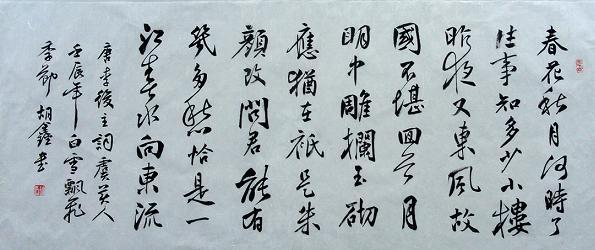 春花秋月何時了
往事知多少小樓
昨夜又東風故
國不堪回首月
明中雕欄玉砌
應猶在祇是朱
顏改問君能有
幾多愁恰是一
江春水向東流
唐李後主詞虞美人
壬辰年白雪飄飛
季節胡鑫書